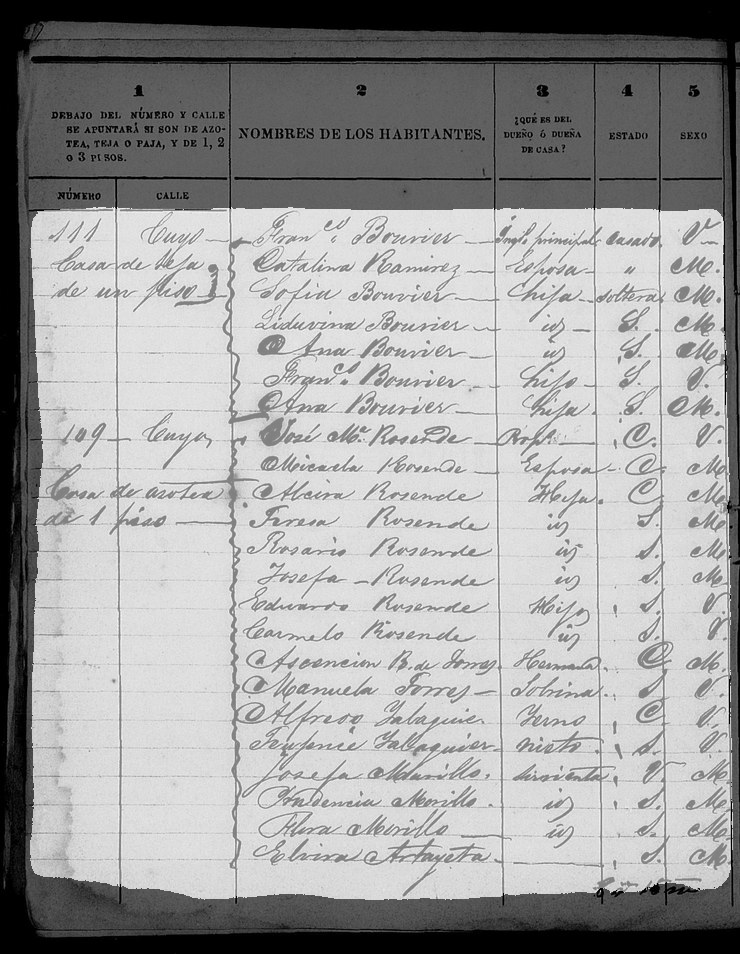 1 2 3 4 5
DEBAJO DEL NÚMERO Y CALLE SE APUNTARÁ SI SON DE AZOTEA, TEJA O PAJA, Y DE 1, 2 O 3 PISOS.
NOMBRES DE LOS HABITANTES.
¿QUÉ ES DEL DUEÑO Ó DUEÑA DE CASA?
ESTADO
SEXO
NÚMERO CALLE
111 Cuyo Fran.co Bouvier Inq.o principal casado V.
Casa de teja Catalina Ramirez Esposa " M.
de un piso Sofia Bouvier hija soltera M.
Liduvina Bouvier id S. M.
Ana Bouvier id S. M.
Fran.co Bouvier hijo S. V.
Ana Bouvier hija S. M.
109 Cuyo José Ma. Rosende Prop. C. V.
Micaela Rosende Esposa C. M.
Casa de azotea Alcira Rosende Hija C. M
de 1 piso Teresa Rosende id S. M.
Rosario Rosende id S. M
Josefa Rosende id S. M
Eduardo Rosende Hijo S. V.
Carmelo Rosende id S. V.
Ascencion B. de Torres Hermana C. M.
Manuela Torres Sobrina S. V
Alfredo Jalaguier Yerno C. V.
Jalaguier nieto S. V
Josefa Murillo sirvienta V. M
Prudencia Morillo id S. M
Flora Morillo id S. M
Elvira Artayeta S. M